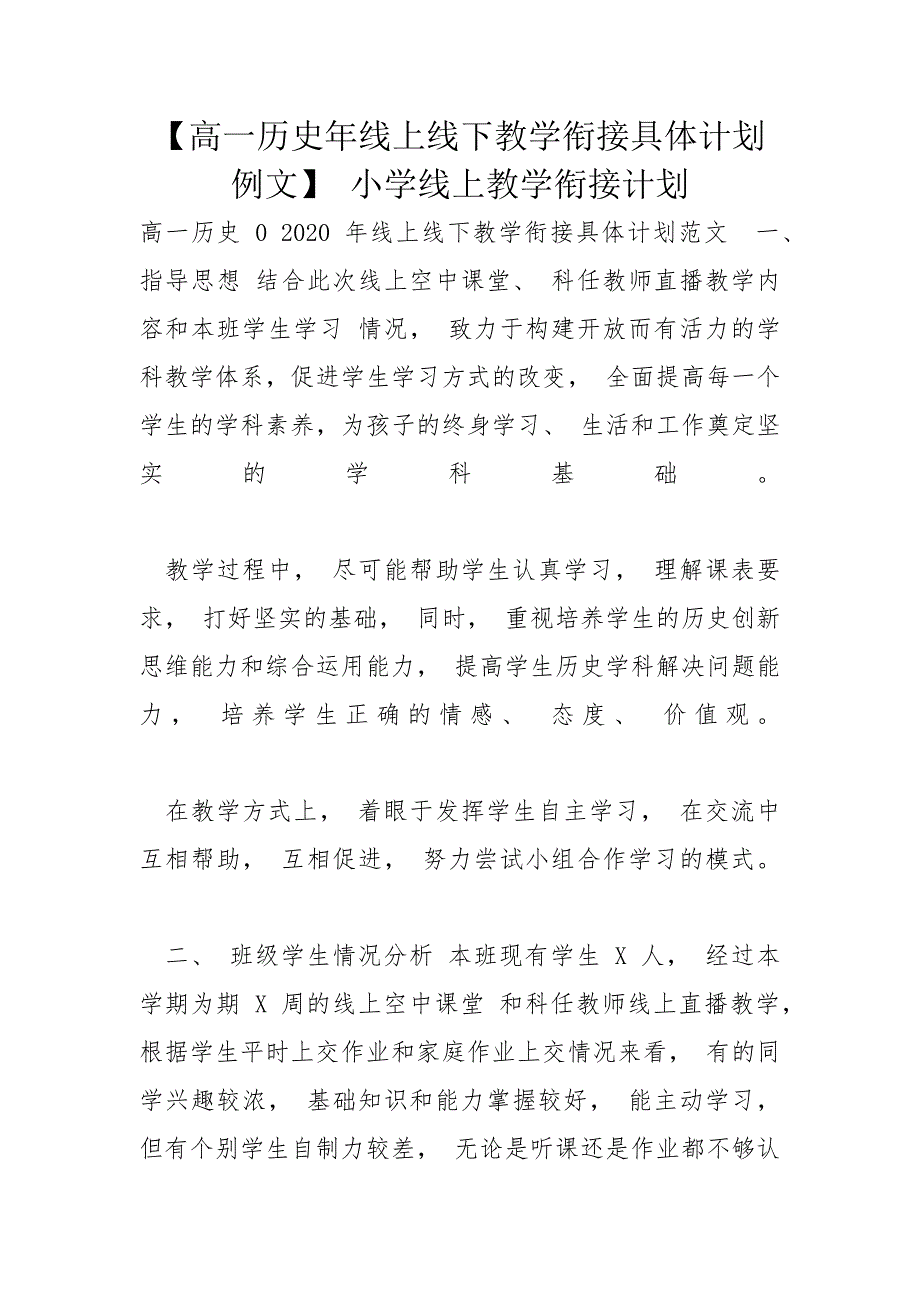 【高一历史年线上线下教学衔接具体计划
例文】 小学线上教学衔接计划
高一历史 0 2020 年线上线下教学衔接具体计划范文 一、
指导思想 结合此次线上空中课堂、 科任教师直播教学内
容和本班学生学习 情况， 致力于构建开放而有活力的学
科教学体系，促进学生学习方式的改变， 全面提高每一个
学生的学科素养，为孩子的终身学习、 生活和工作奠定坚
实的学科基础。
教学过程中， 尽可能帮助学生认真学习， 理解课表要
求， 打好坚实的基础， 同时， 重视培养学生的历史创新
思维能力和综合运用能力， 提高学生历史学科解决问题能
力， 培养学生正确的情感、 态度、 价值观。
在教学方式上， 着眼于发挥学生自主学习， 在交流中
互相帮助， 互相促进， 努力尝试小组合作学习的模式。
二、 班级学生情况分析 本班现有学生 X 人， 经过本
学期为期 X 周的线上空中课堂 和科任教师线上直播教学，
根据学生平时上交作业和家庭作业上交情况来看， 有的同
学兴趣较浓， 基础知识和能力掌握较好， 能主动学习，
但有个别学生自制力较差， 无论是听课还是作业都不够认